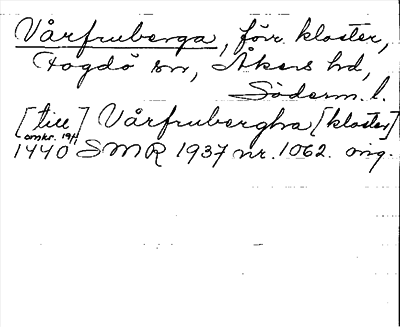 Vårfruberga, förr kloster,
Fogdö sn, Åkers hd,
Söderm. l.
[till] Vårfrubergha [kloster]
omkr. 1911
1440 SMR 1937 nr. 1062. orig.